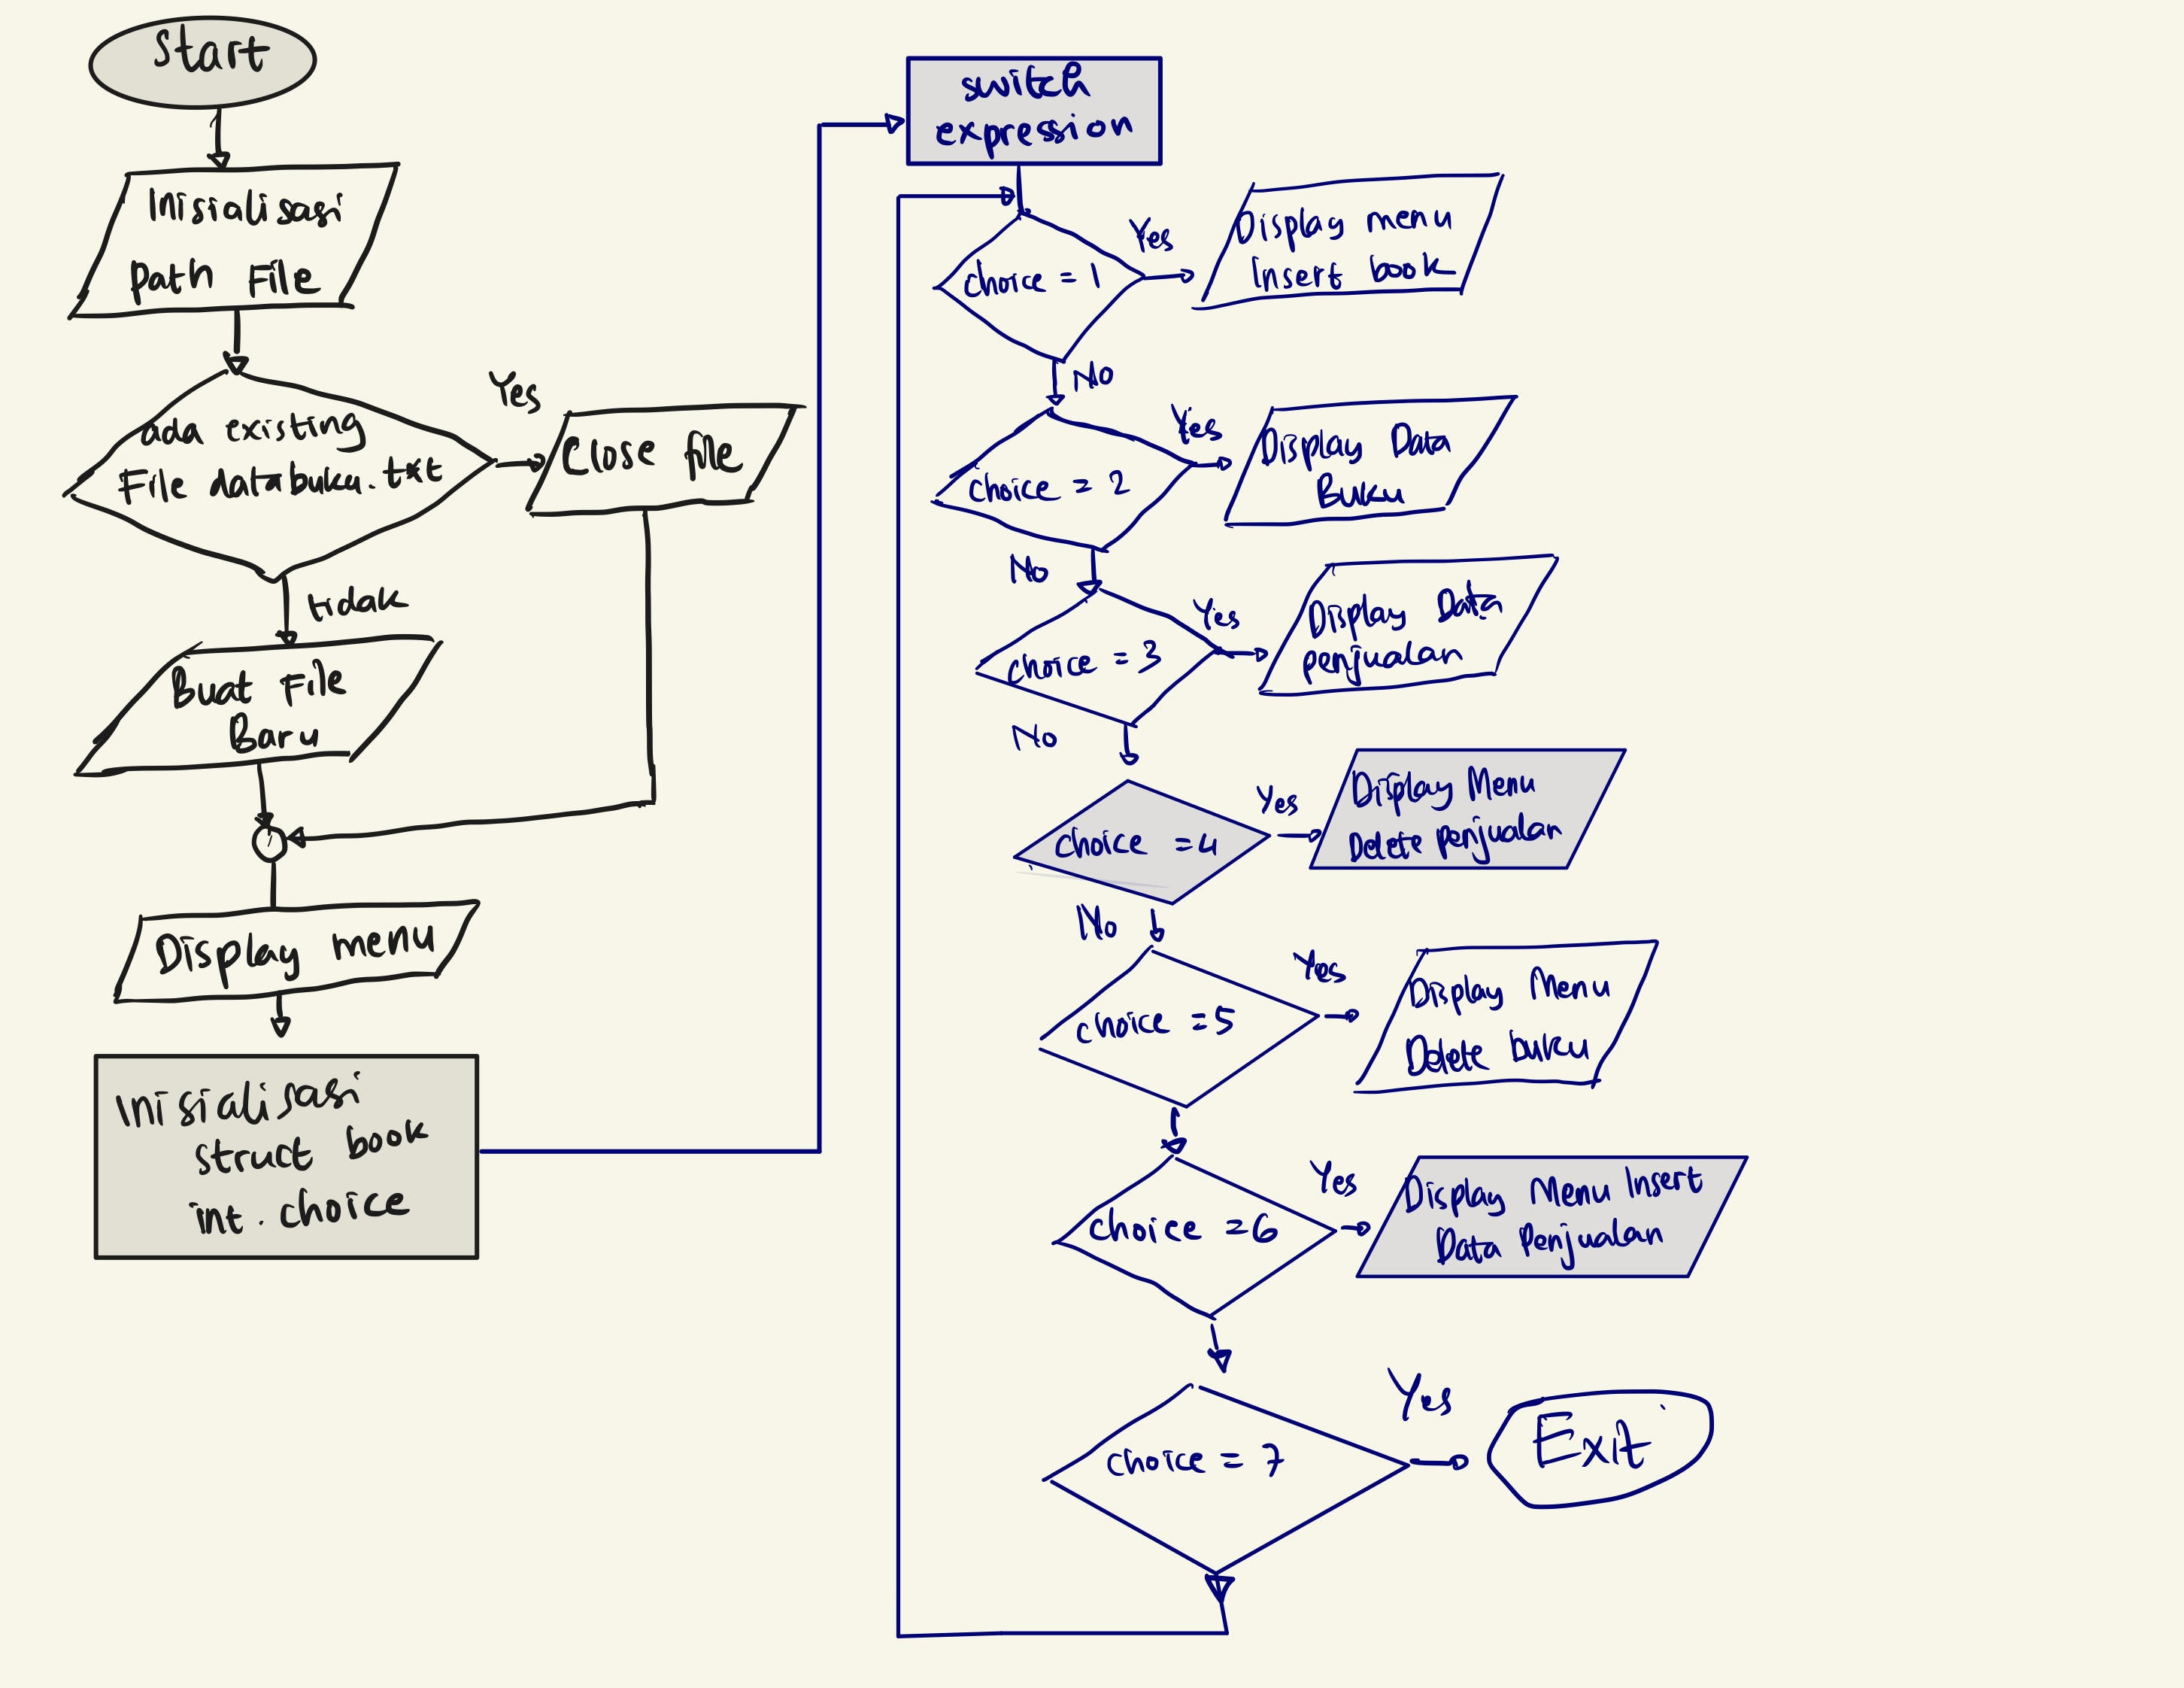 Start
Inisialisasi
Path File
ada existing
File databuku.txt
Yes
Close file
tidak
Buat File
Baru
Display menu
Inisialisasi
struct book
int. choice
switch
expression
choice = 1
Yes
Display menu
Insert book
No
choice = 2
Yes
Display Data
Buku
No
choice = 3
Yes
Display Data
penjualan
No
choice = 4
Yes
Display Menu
Delete penjualan
No
choice = 5
Yes
Display Menu
Delete buku
choice = 6
Yes
Display Menu Insert
Data Penjualan
choice = 7
Yes
Exit